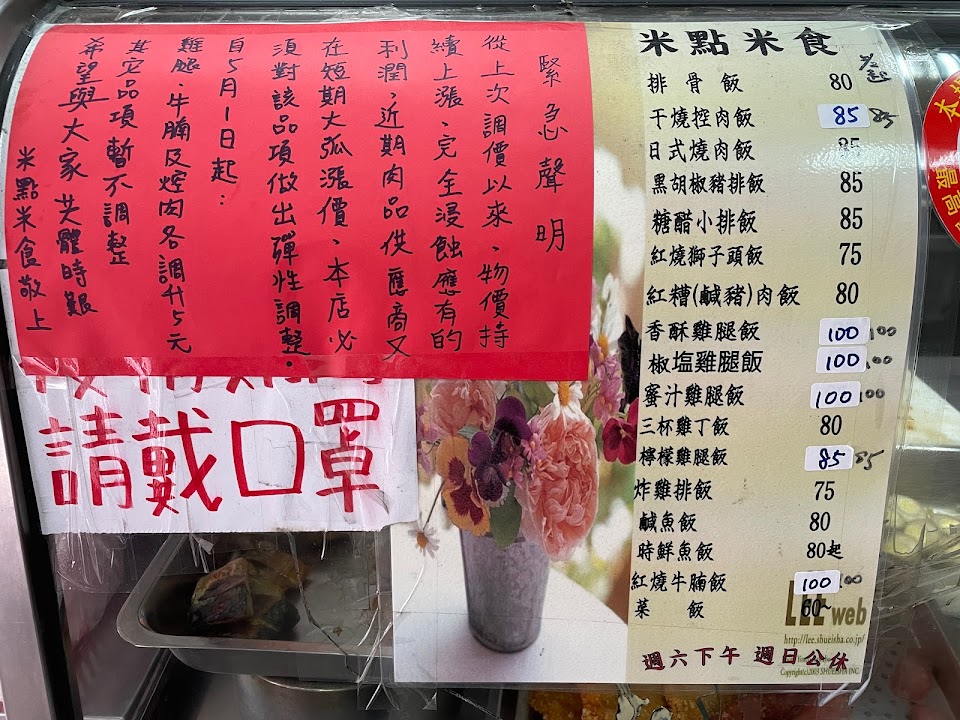 緊急聲明
從上次調價以來、物價持
續上漲、完全浸蝕應有的
利潤、近期肉品供應商又
在短期大弧漲價、本店必
須對該品項做出彈性調整.
自5月1日起:
雞腿、牛腩及焢肉各調升5元
其它品項暫不調整
希望與大家共體時艱
米點米食敬上
請戴口罩
米點米食
排骨飯 80
干燒控肉飯 85 85
日式燒肉飯 85
黑胡椒豬排飯 85
糖醋小排飯 85
紅燒獅子頭飯 75
紅糟(鹹豬)肉飯 80
香酥雞腿飯 100 100
椒塩雞腿飯 100 100
蜜汁雞腿飯 100 100
三杯雞丁飯 80
檸檬雞腿飯 85 85
炸雞排飯 75
鹹魚飯 80
時鮮魚飯 80起
紅燒牛腩飯 100 100
菜飯 60~
LEE web
http://lee.shueisha.co.jp/
週六下午 週日公休